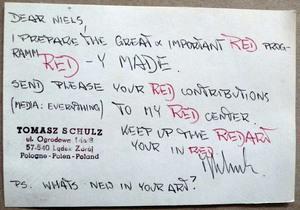 DEAR NIELS,
I PREPARE THE GREAT & IMPORTANT RED PROG-
RAMM RED-Y MADE.
SEND PLEASE YOUR RED CONTRIBUTIONS
(MEDIA: EVERYTHING) TO MY RED CENTER.
KEEP UP THE REDART
YOUR IN RED
TOMASZ SCHULZ
ul. Ogrodowa
57-540 Lądek Zdrój
Pologne-Polen-Poland
PS. WHATS NEW IN YOUR ART?